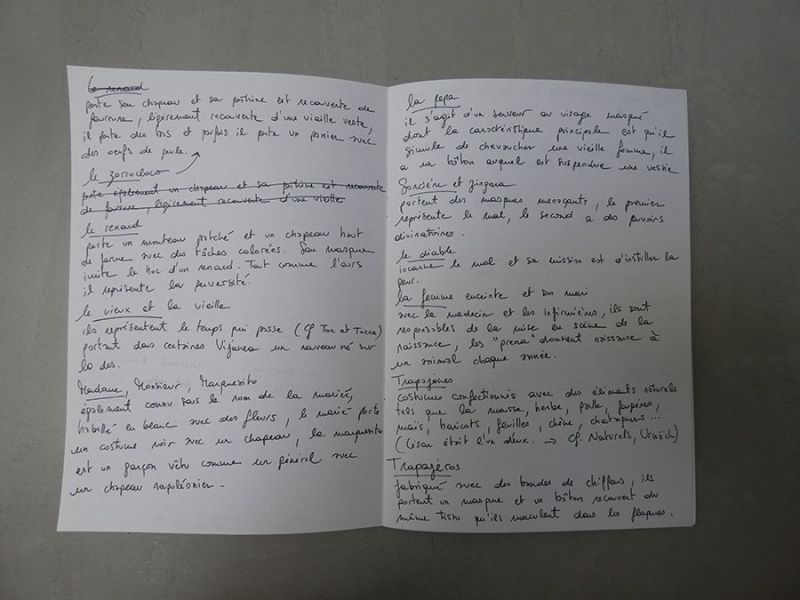 le renard
porte son chapeau et sa poitrine est recouverte de
fourrure, légèrement recouverte d'une vieille veste,
il porte des bas et parfois il porte un panier avec
des oeufs de poule.
le zorrocloco
porte également un chapeau et sa poitrine est recouverte
de fourrure, légèrement recouverte d'une vieille
le renard
porte un manteau potché et un chapeau haut
de forme avec des tâches colorées. Son masque
imite le d'un renard. Tout comme l'ours
il représente la perversité.
le vieux et la vieille
ils représentent le temps qui passe (cf Toc et Tocca)
portant dans certaines Vijanea un nouveau né sur
le dos.
Madame, Monsieur, Marquesito
également connu sous le nom de la mariée,
habillé en blanc avec des fleurs, le marié porte
un costume noir avec un chapeau, la marquesito
est un garçon vêtu comme un général avec
un chapeau napoléonien.
la pepa
il s'agit d'un danseur au visage masqué
dont la caractéristique principale est qu'il
simule de chevaucher une vieille femme, il
a un bâton auquel est suspendue une vessie
Sorcière et zingara
portent des masques menaçants, le premier
représente le mal, le second a des pouvoirs
divinatoires.
le diable
incarne le mal et sa mission est d'instiller la
peur.
la femme enceinte et son mari
avec le médecin et les infirmières, ils sont
responsables de la mise en scène de la
naissance, les "prena" donnent naissance à
un animal chaque année.
Trapajones
costumes confectionnés avec des éléments naturels
tels que la mousse, herbe, paille, fougères,
maïs, haricots, feuilles, chêne, chataignes...
(l'ours était l'un d'eux. → cf. Naturels, Urnäsch)
Trapajeros
fabriqué avec des bandes de chiffons, ils
portent un masque et un bâton recouvert du
même tissu qu'ils maculent dans les flaques.